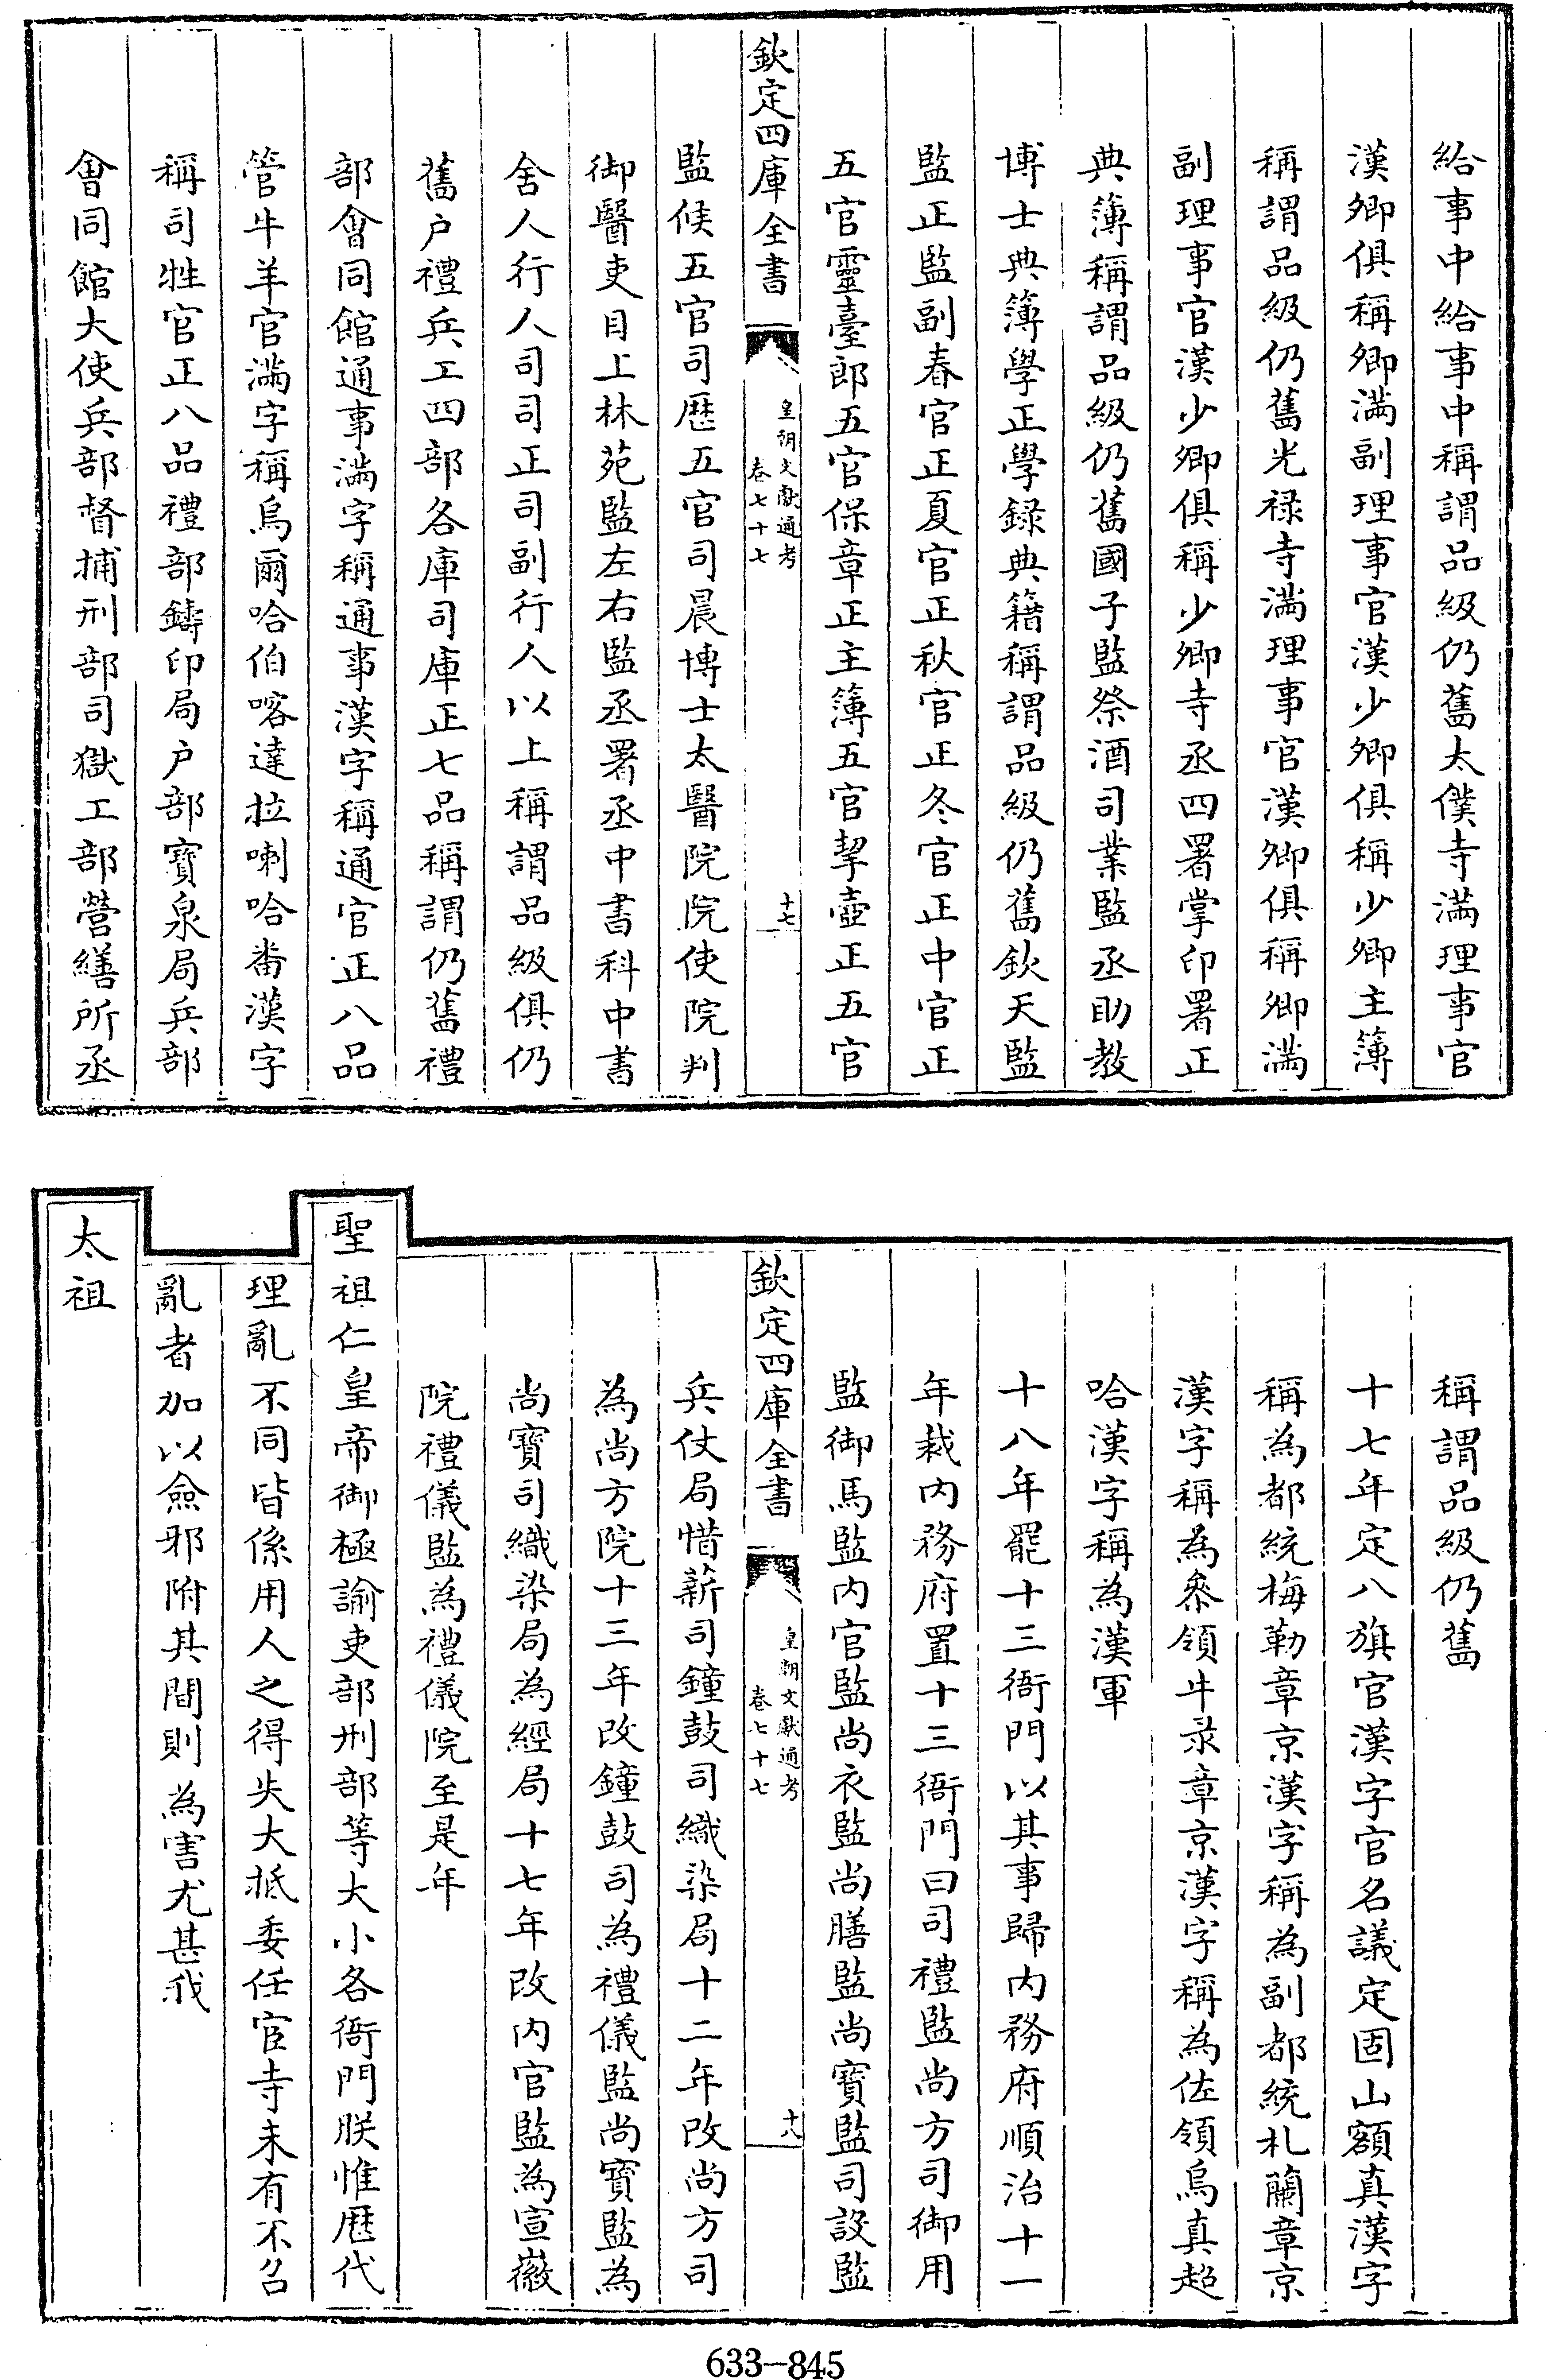 給事中給事中稱謂品級仍舊太僕寺滿理事官
漢卿俱稱卿滿副理事官漢少卿俱稱少卿主簿
稱謂品級仍舊光禄寺滿理事官漢卿俱稱卿滿
副理事官漢少卿俱稱少卿寺丞四署掌印署正
典簿稱謂品級仍舊國子監祭酒司業監丞助教
博士典簿學正學録典籍稱謂品級仍舊欽天監
監正監副春官正夏官正秋官正冬官正中官正
五官靈臺郎五官保章正主簿五官挈壺正五官
欽定四庫全書
皇朝文獻通考
卷七十七
十七
監候五官司歷五官司晨博士太醫院院使院判
御醫吏目上林苑監左右監丞署丞中書科中書
舍人行人司司正司副行人以上稱謂品級俱仍
舊户禮兵工四部各庫司庫正七品稱謂仍舊禮
部會同館通事滿字稱通事漢字稱通官正八品
管牛羊官滿字稱烏爾哈伯喀達拉喇哈番漢字
稱司牲官正八品禮部鑄印局户部寶泉局兵部
會同館大使兵部督捕刑部司獄工部營繕所丞
稱謂品級仍舊
十七年定八旗官漢字官名議定固山額真漢字
稱為都統梅勒章京漢字稱為副都統札蘭章京
漢字稱為叅領牛录章京漢字稱為佐領烏真超
哈漢字稱為漢軍
十八年罷十三衙門以其事歸内務府順治十一
年裁内務府置十三衙門曰司禮監尚方司御用
監御馬監内官監尚衣監尚膳監尚寶監司設監
欽定四庫全書
皇朝文獻通考
卷七十七
十八
兵仗局惜薪司鐘鼓司織染局十二年改尚方司
為尚方院十三年改鐘鼓司為禮儀監尚寶監為
尚寶司織染局為經局十七年改内官監為宣徽
院禮儀監為禮儀院至是年
聖祖仁皇帝御極諭吏部刑部等大小各衙門朕惟歷代
理亂不同皆係用人之得失大抵委任宦寺未有不召
亂者加以僉邪附其間則為害尤甚我
太祖
633-845